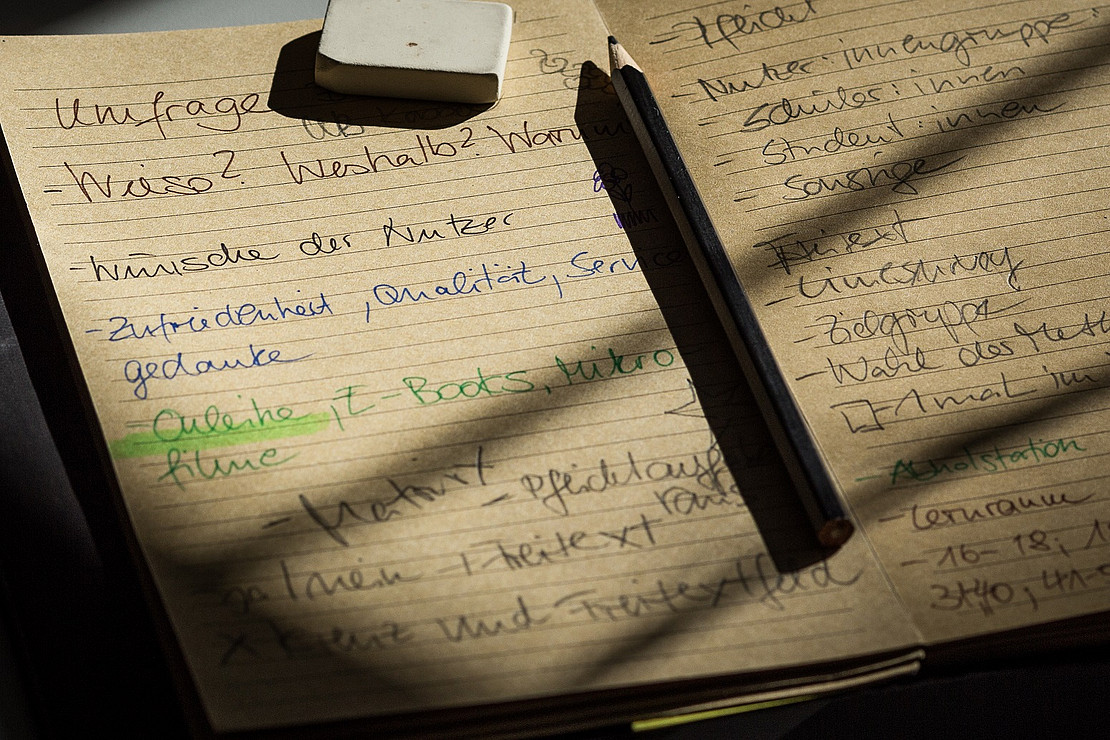 Umfrage
- Wieso? Weshalb? Warum
- Wünsche der Nutzer
- Zufriedenheit, Qualität, Service
gedanke
- Onleihe, E-Books, Mikro
filme
ja/nein + Freitext
x Kreuz und Freitextfeld
- Pflicht
- Nutzer:innengruppe:
- Schüler:innen
- Student:innen
- Sonstige
- Limesurvey
- Zielgruppe
- Wahl der
1 mal im
- Abholstation
- Lernraum
- 16-18,